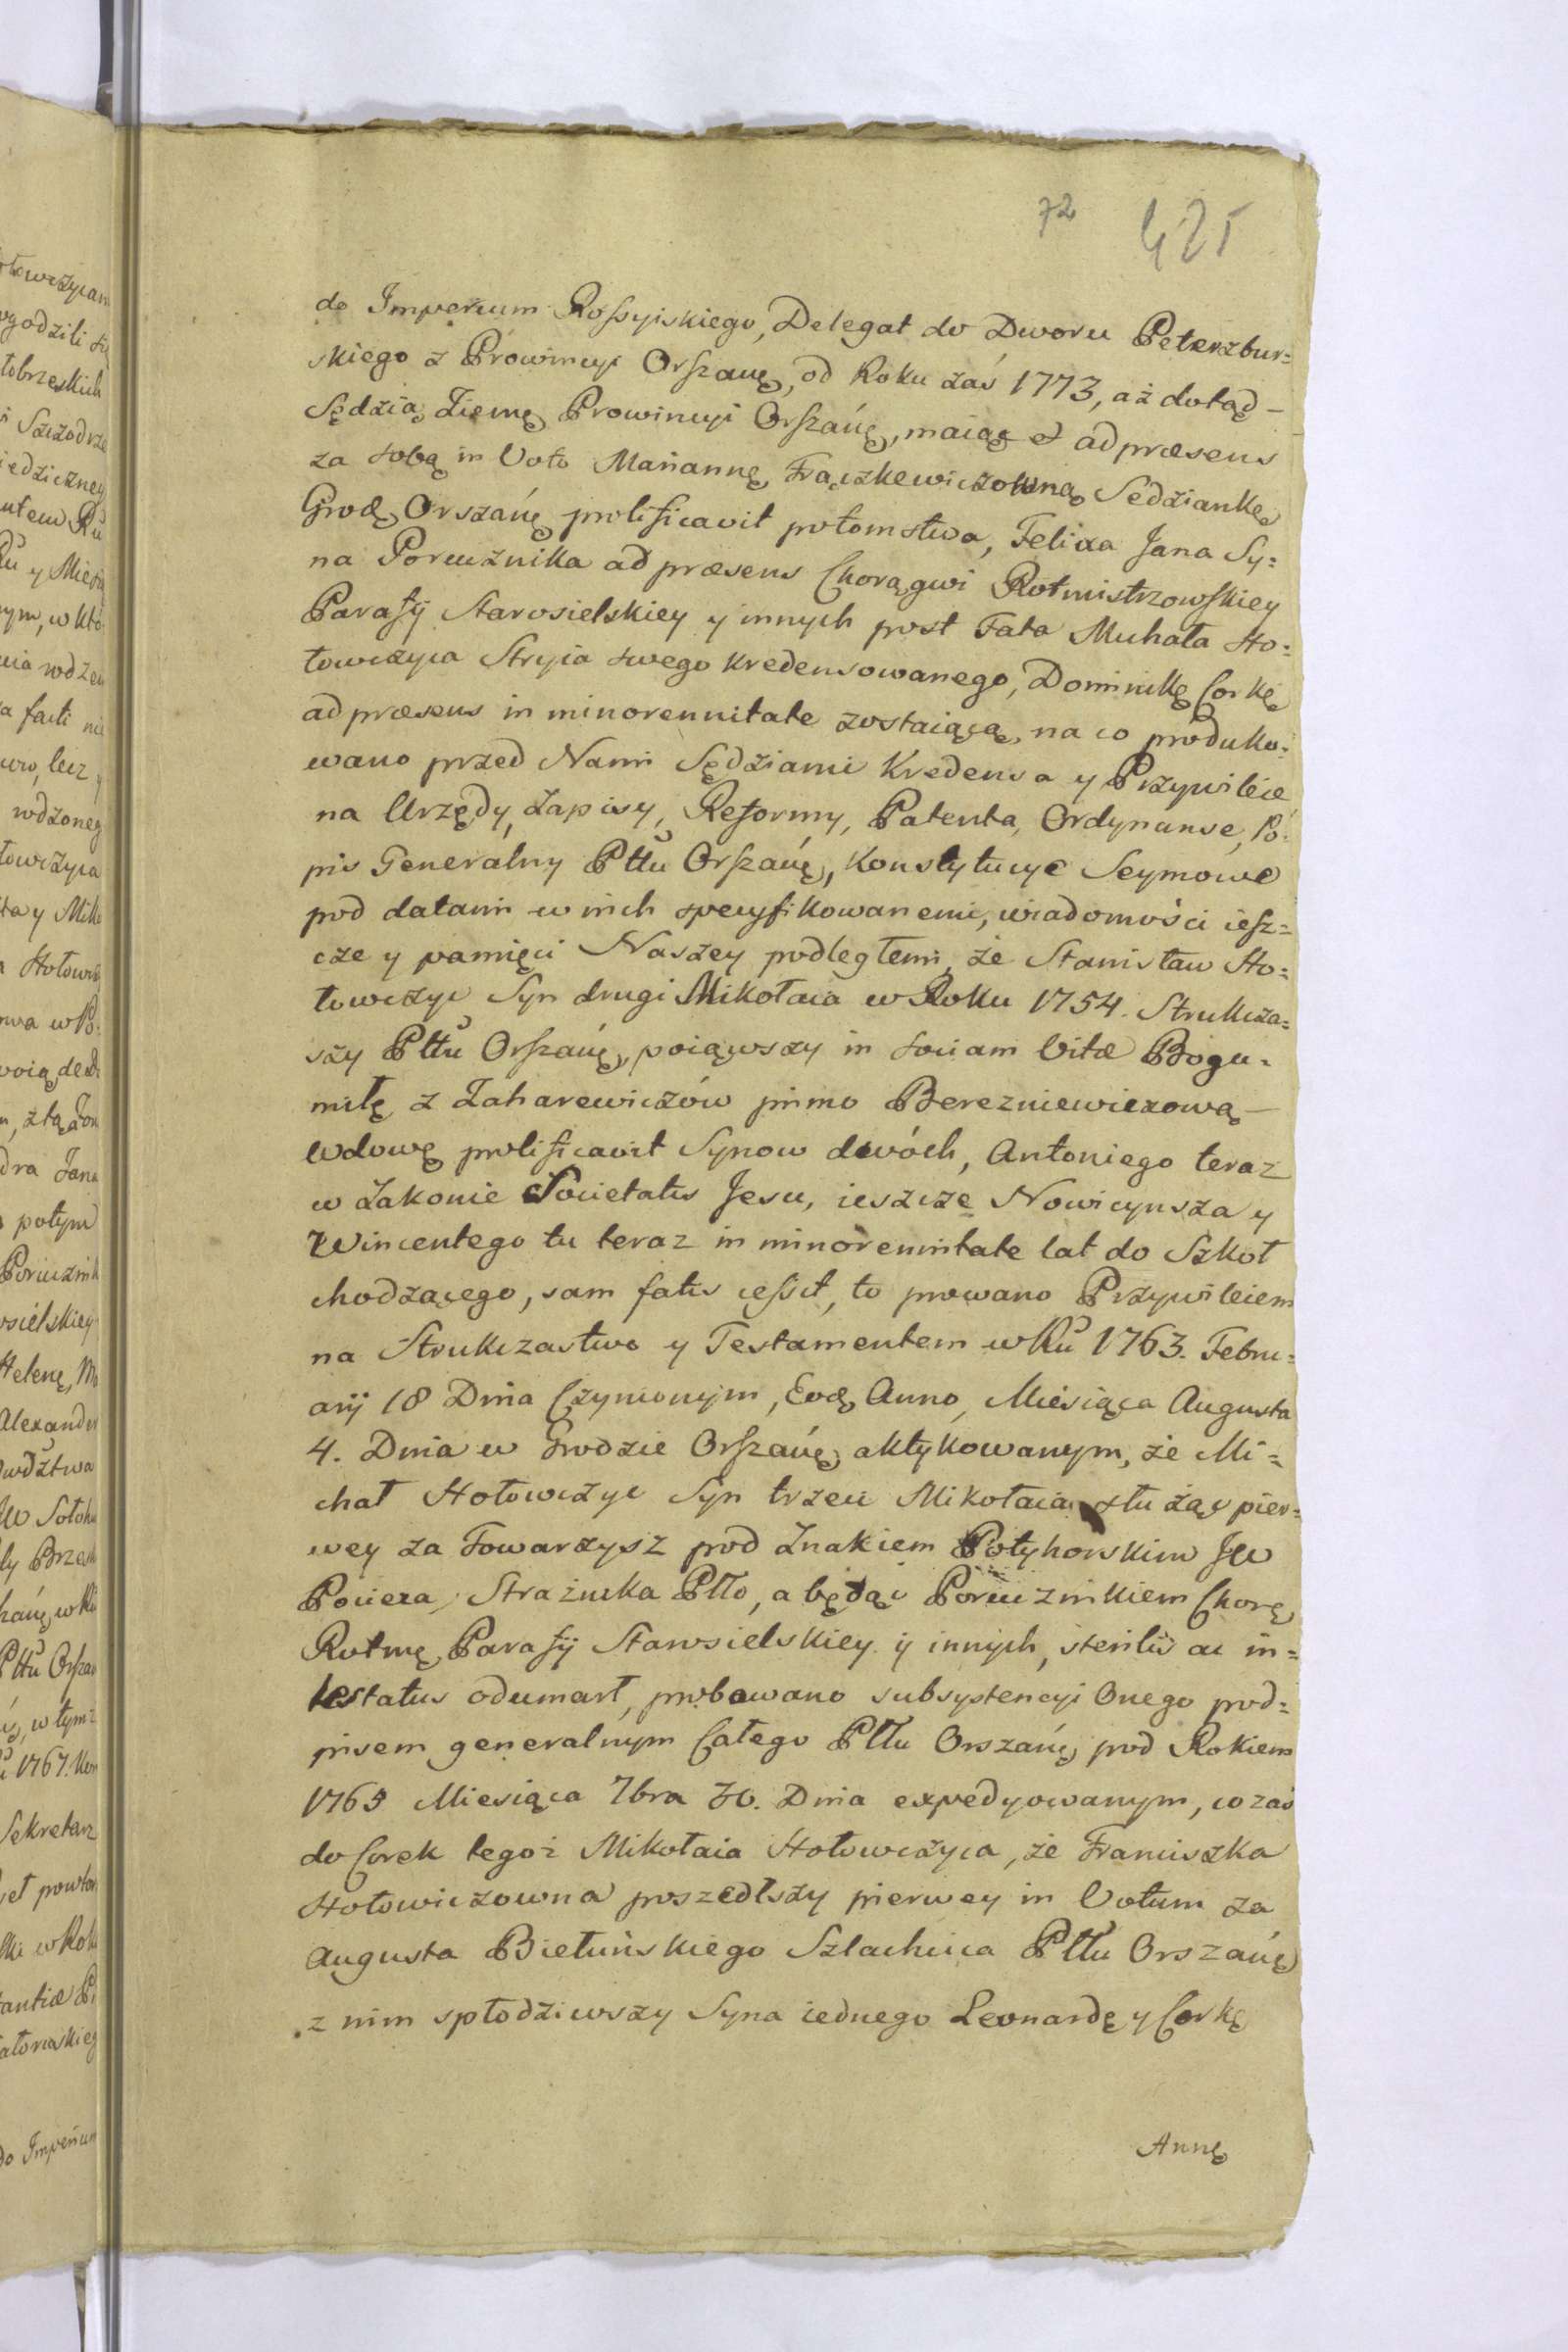 72 425
do Imperium Rossyiskiego, Delegat do Dworu Peterzbur=
skiego z Prowincyi Orszanę, od Roku zaś 1773, aż dotąd –
Sędzią Ziemę Prowincyi Orszańę, maiąc et ad præsens
za sobą in Voto Mariannę Frąckewiczownę Sędziankę
Grodę Orszańę prolificavit potomstwa, Felixa Jana Sy=
na Porucznika ad præsens Chorągwi Rotmistrzowskiey
Parafij Starosielskiey y innych post Fata Michała Ho=
łowczyca Stryia swego kredensowanego, Dominikę Corkę
ad præsens in minorennitate zostaiącą, na co produko=
wano przed Nami Sędziami Kredensa y Przywileie
na Urzędy, Zapisy, Reformy, Patenta, Ordynanse, Po=
pis Generalny Pttu Orszańę, Konstytucye Seymowe
pod datami w nich specyfikowanemi, wiadomości iesz=
cze y pamięci Naszey podległemi, że Stanisław Ho=
łowczyc Syn drugi Mikołaia w Roku 1754. Strukcza=
szy Pttu Orszańę, poiąwszy in sociam Vitæ Bogu=
miłę z Zaharewiczów primo Berezniewiczową –
wdowę prolificavit Synow dwóch, Antoniego teraz
w Zakonie Societatis Jesu, ieszcze Nowicyusza y
Wincentego tu teraz in minorennitate lat do Szkoł
chodzącego, sam fatis cessit, to prowano Przywileiem
na Strukczastwo y Testamentem w Ru 1763. Febru=
arij 18 Dnia Czynionym, Eodę Anno, Miesiąca Augusta
4. Dnia w Grodzie Orszańę aktykowanym, że Mi=
chał Hołowczyc Syn trzeci Mikołaia służąc pier=
wey za Towarzysz pod Znakiem Potyhorskim JW
Pocieia Strażnika Ptto, a będąc Porucznikiem Chorę
Rotmę Parafij Starosielskiey y innych, sterilis ac in=
testatus odumarł, probowano subsystencyi Onego pod=
pisem generalnym Całego Pttu Orszańę pod Rokiem
1765 Miesiąca 7bra 30. Dnia expedyowanym, co zaś
do Corek tegoż Mikołaia Hołowczyca, że Franciszka
Hołowiczowna poszedłszy pierwey in Votum za
Augusta Biełuńskiego Szlachcica Pttu Orszańę
z nim spłodziwszy Syna iednego Leonardę y Corkę
Annę